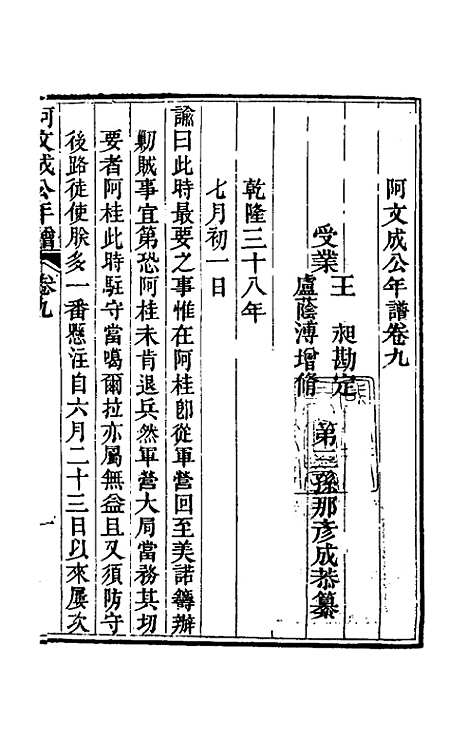 阿文成公年譜卷九
受業王昶勘定
盧蔭溥增脩
第三孫那彥成恭纂
乾隆三十八年
七月初一日
諭曰此時最要之事惟在阿桂卽從軍營回至美諾籌辦
剿賊事宜第恐阿桂未肯退兵然軍營大局當務其切
要者阿桂此時駐守當噶爾拉亦屬無益且又須防守
後路徒使朕多一番懸注自六月二十三日以來屢次
阿文成公年譜 卷九 一